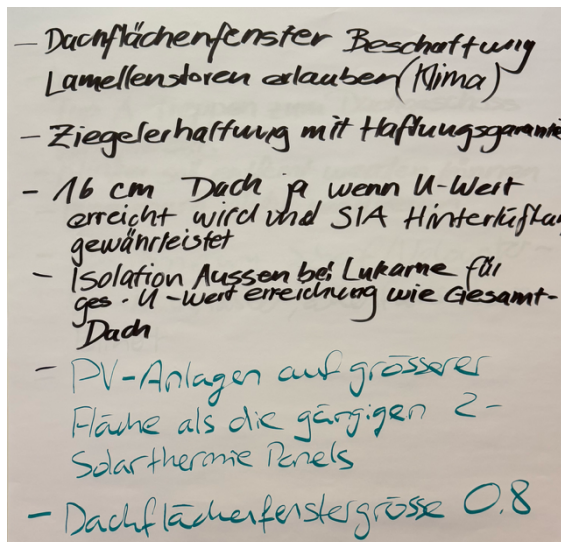 - Dachflächenfenster Beschattung
Lamellenstoren erlauben (Klima)
- Ziegelerhaltung mit Haftungsgarantie
- 16 cm Dach ja wenn U-Wert
erreicht wird und SIA Hinterlüftun
gewährleistet
- Isolation Aussen bei Lukarne für
ges. U-Wert erreichung wie Gesamt-
Dach
- PV-Anlagen auf grösserer
Fläche als die gängigen 2-
Solarthermie Panels
- Dachflächenfenstergrösse 0.8